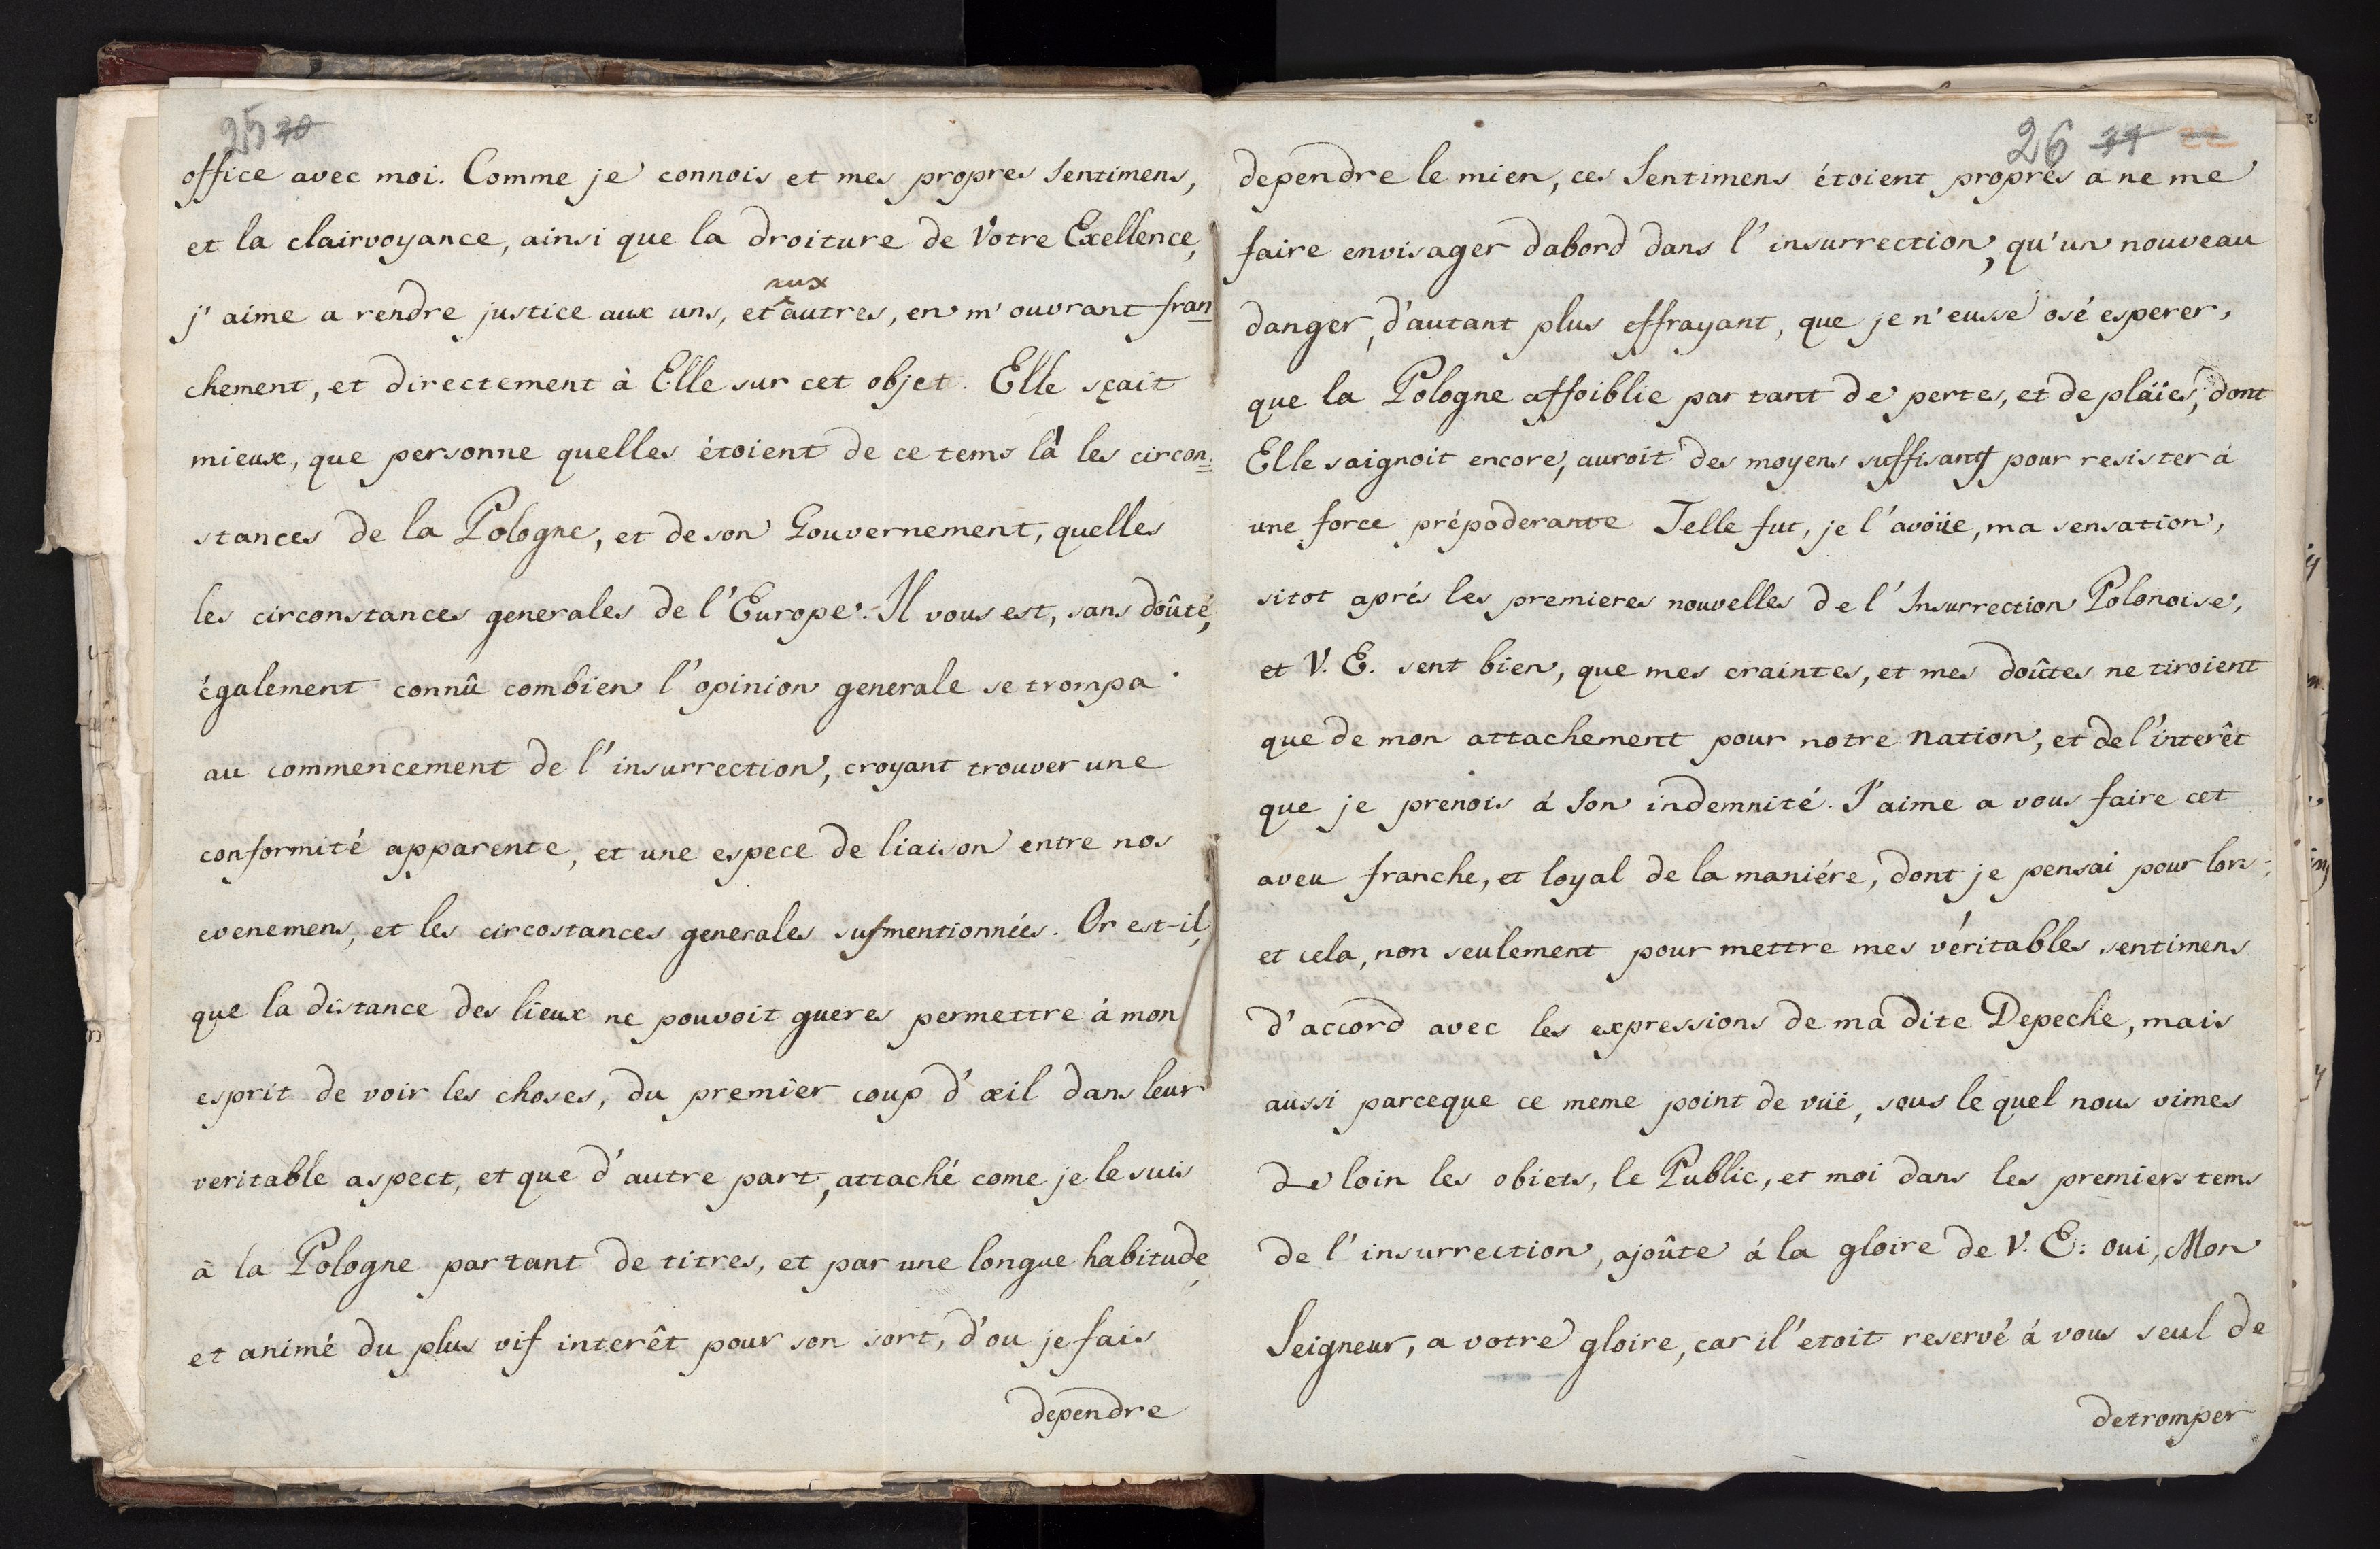 25 30
office avec moi. Comme je connois et mes propres Sentimens,
et la clairvoyance, ainsi que la droiture de Votre Exellence,
j'aime a rendre justice aux uns, et aux autres, en m'ouvrant fran
chement, et directement à Elle sur cet objet. Elle sçait
mieux, que personne quelles étoient de ce tems là les circon=
stances de la Pologne, et de son Gouvernement, quelles
les circonstances generales de l'Europe. Il vous est, sans doûte,
également connû combien l'opinion generale se trompa
au commencement de l'insurrection, croyant trouver une
conformité apparente, et une espece de liaison entre nos
evenemens, et les circostances generales susmentionnées. Or est-il,
que la distance des lieux ne pouvoit gueres permettre á mon
esprit de voir les choses, du premier coup d'œil dans leur
veritable aspect, et que d'autre part, attaché come je le suis
à la Pologne par tant de titres, et par une longue habitude,
et animé du plus vif interêt pour son sort, d'ou je fais
dependre
26 31
dependre le mien, ces Sentimens étoient propres a ne me
faire envisager dabord dans l'insurrection, qu'un nouveau
danger, d'autant plus effrayant, que je n'eusse osé esperer,
que la Pologne affoiblie par tant de pertes, et de plaïes, dont
Elle saignoit encore, auroit des moyens suffisants pour resister á
une force prépoderante Telle fut, je l'avoüe, ma sensation,
sitot aprés les premieres nouvelles de l'Insurrection Polonoise,
et V. E. sent bien, que mes craintes, et mes doûtes ne tiroient
que de mon attachement pour notre nation, et de l'interêt
que je prenois á Son indemnité. J'aime a vous faire cet
aveu franche, et loyal de la maniére, dont je pensai pour lors;
et cela, non seulement pour mettre mes véritables sentimens
d'accord avec les expressions de ma dite Depeche, mais
aussi parceque ce meme point de vüe, sous le quel nous vimes
de loin les obiets, le Public, et moi dans les premiers tems
de l'insurrection, ajoûte á la gloire de V. E: oui, Mon
Seigneur, a votre gloire, car il etoit reservé á vous seul de
detromper